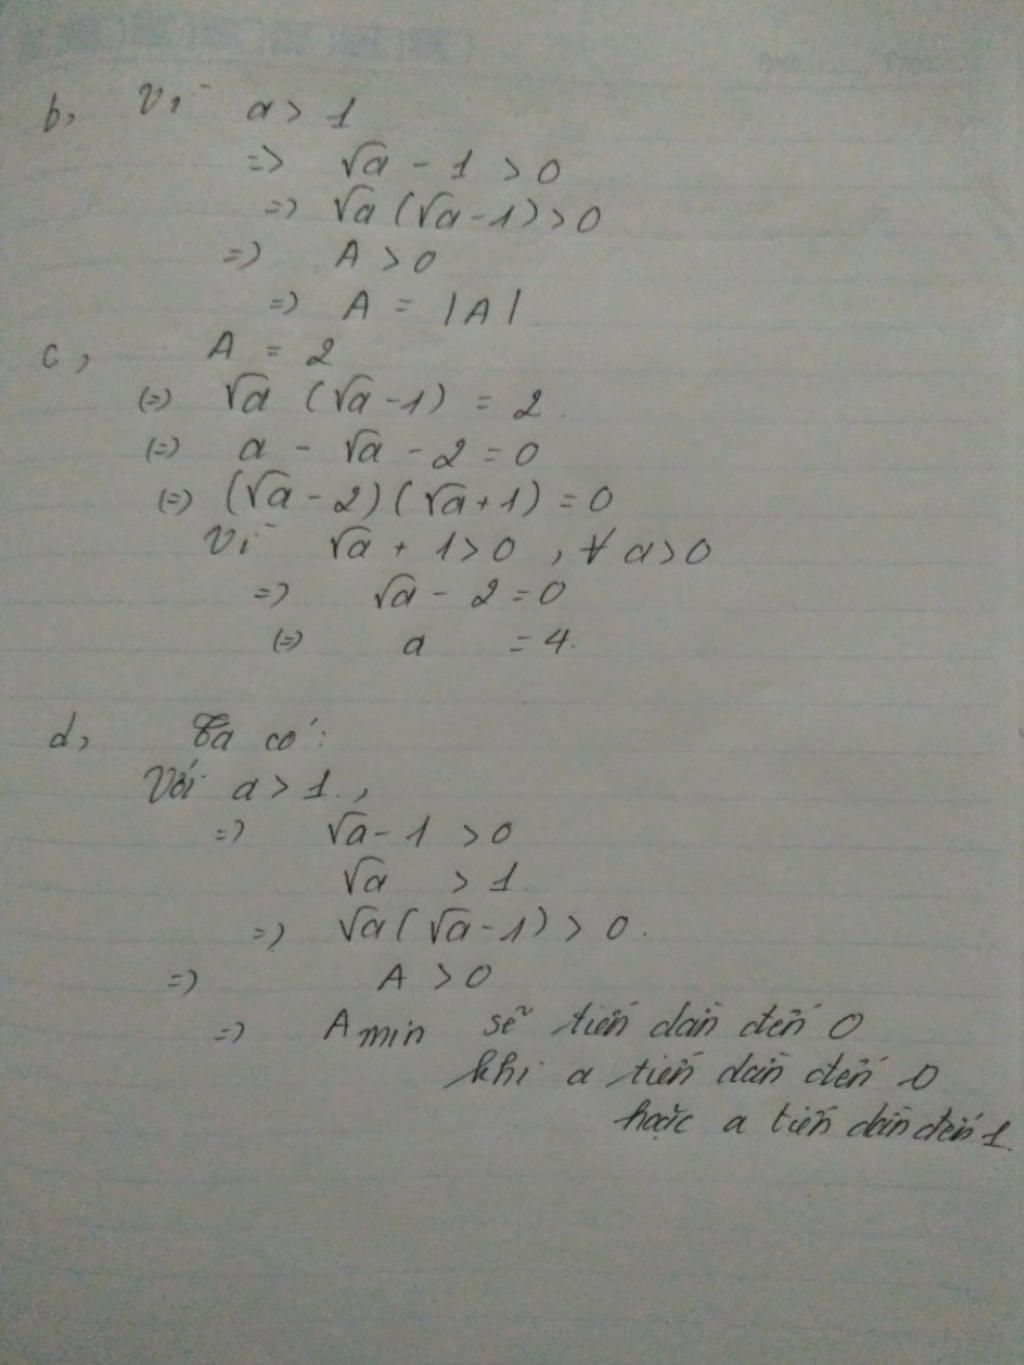 b, Vì a > 1
=> √a - 1 > 0
=> √a (√a - 1) > 0
=> A > 0
=> A = |A|.
c, A = 2
(=) √a (√a - 1) = 2.
(=) a - √a - 2 = 0
(=) (√a - 2)(√a + 1) = 0
Vì √a + 1 > 0 , ∀ a > 0
=> √a - 2 = 0
(=) a = 4.
d, Ta có:
Với a > 1.,
=> √a - 1 > 0
√a > 1.
=> √a (√a - 1) > 0.
=> A > 0
=> A min sẽ tiến dần đến 0
khi a tiến dần đến 0
hoặc a tiến dần đến 1.